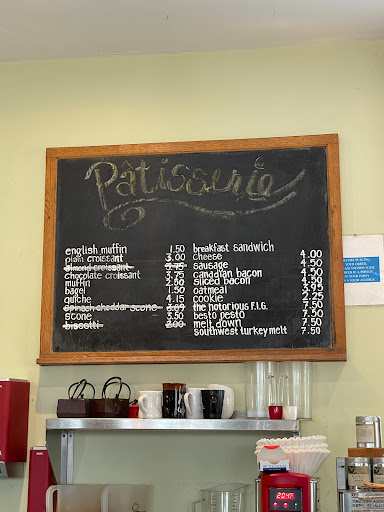 Pâtisserie
english muffin 1.50
plain croissant 3.00
almond croissant 3.75
chocolate croissant 3.75
muffin 2.50
bagel 1.50
quiche 4.15
spinach cheddar scone 3.69
scone 3.50
biscotti 2.00
breakfast sandwich
cheese 4.00
sausage 4.50
canadian bacon 4.50
sliced bacon 4.50
oatmeal 3.95
cookie 2.25
the notorious F.I.G. 7.50
besto pesto 7.50
melt down 7.50
southwest turkey melt 7.50